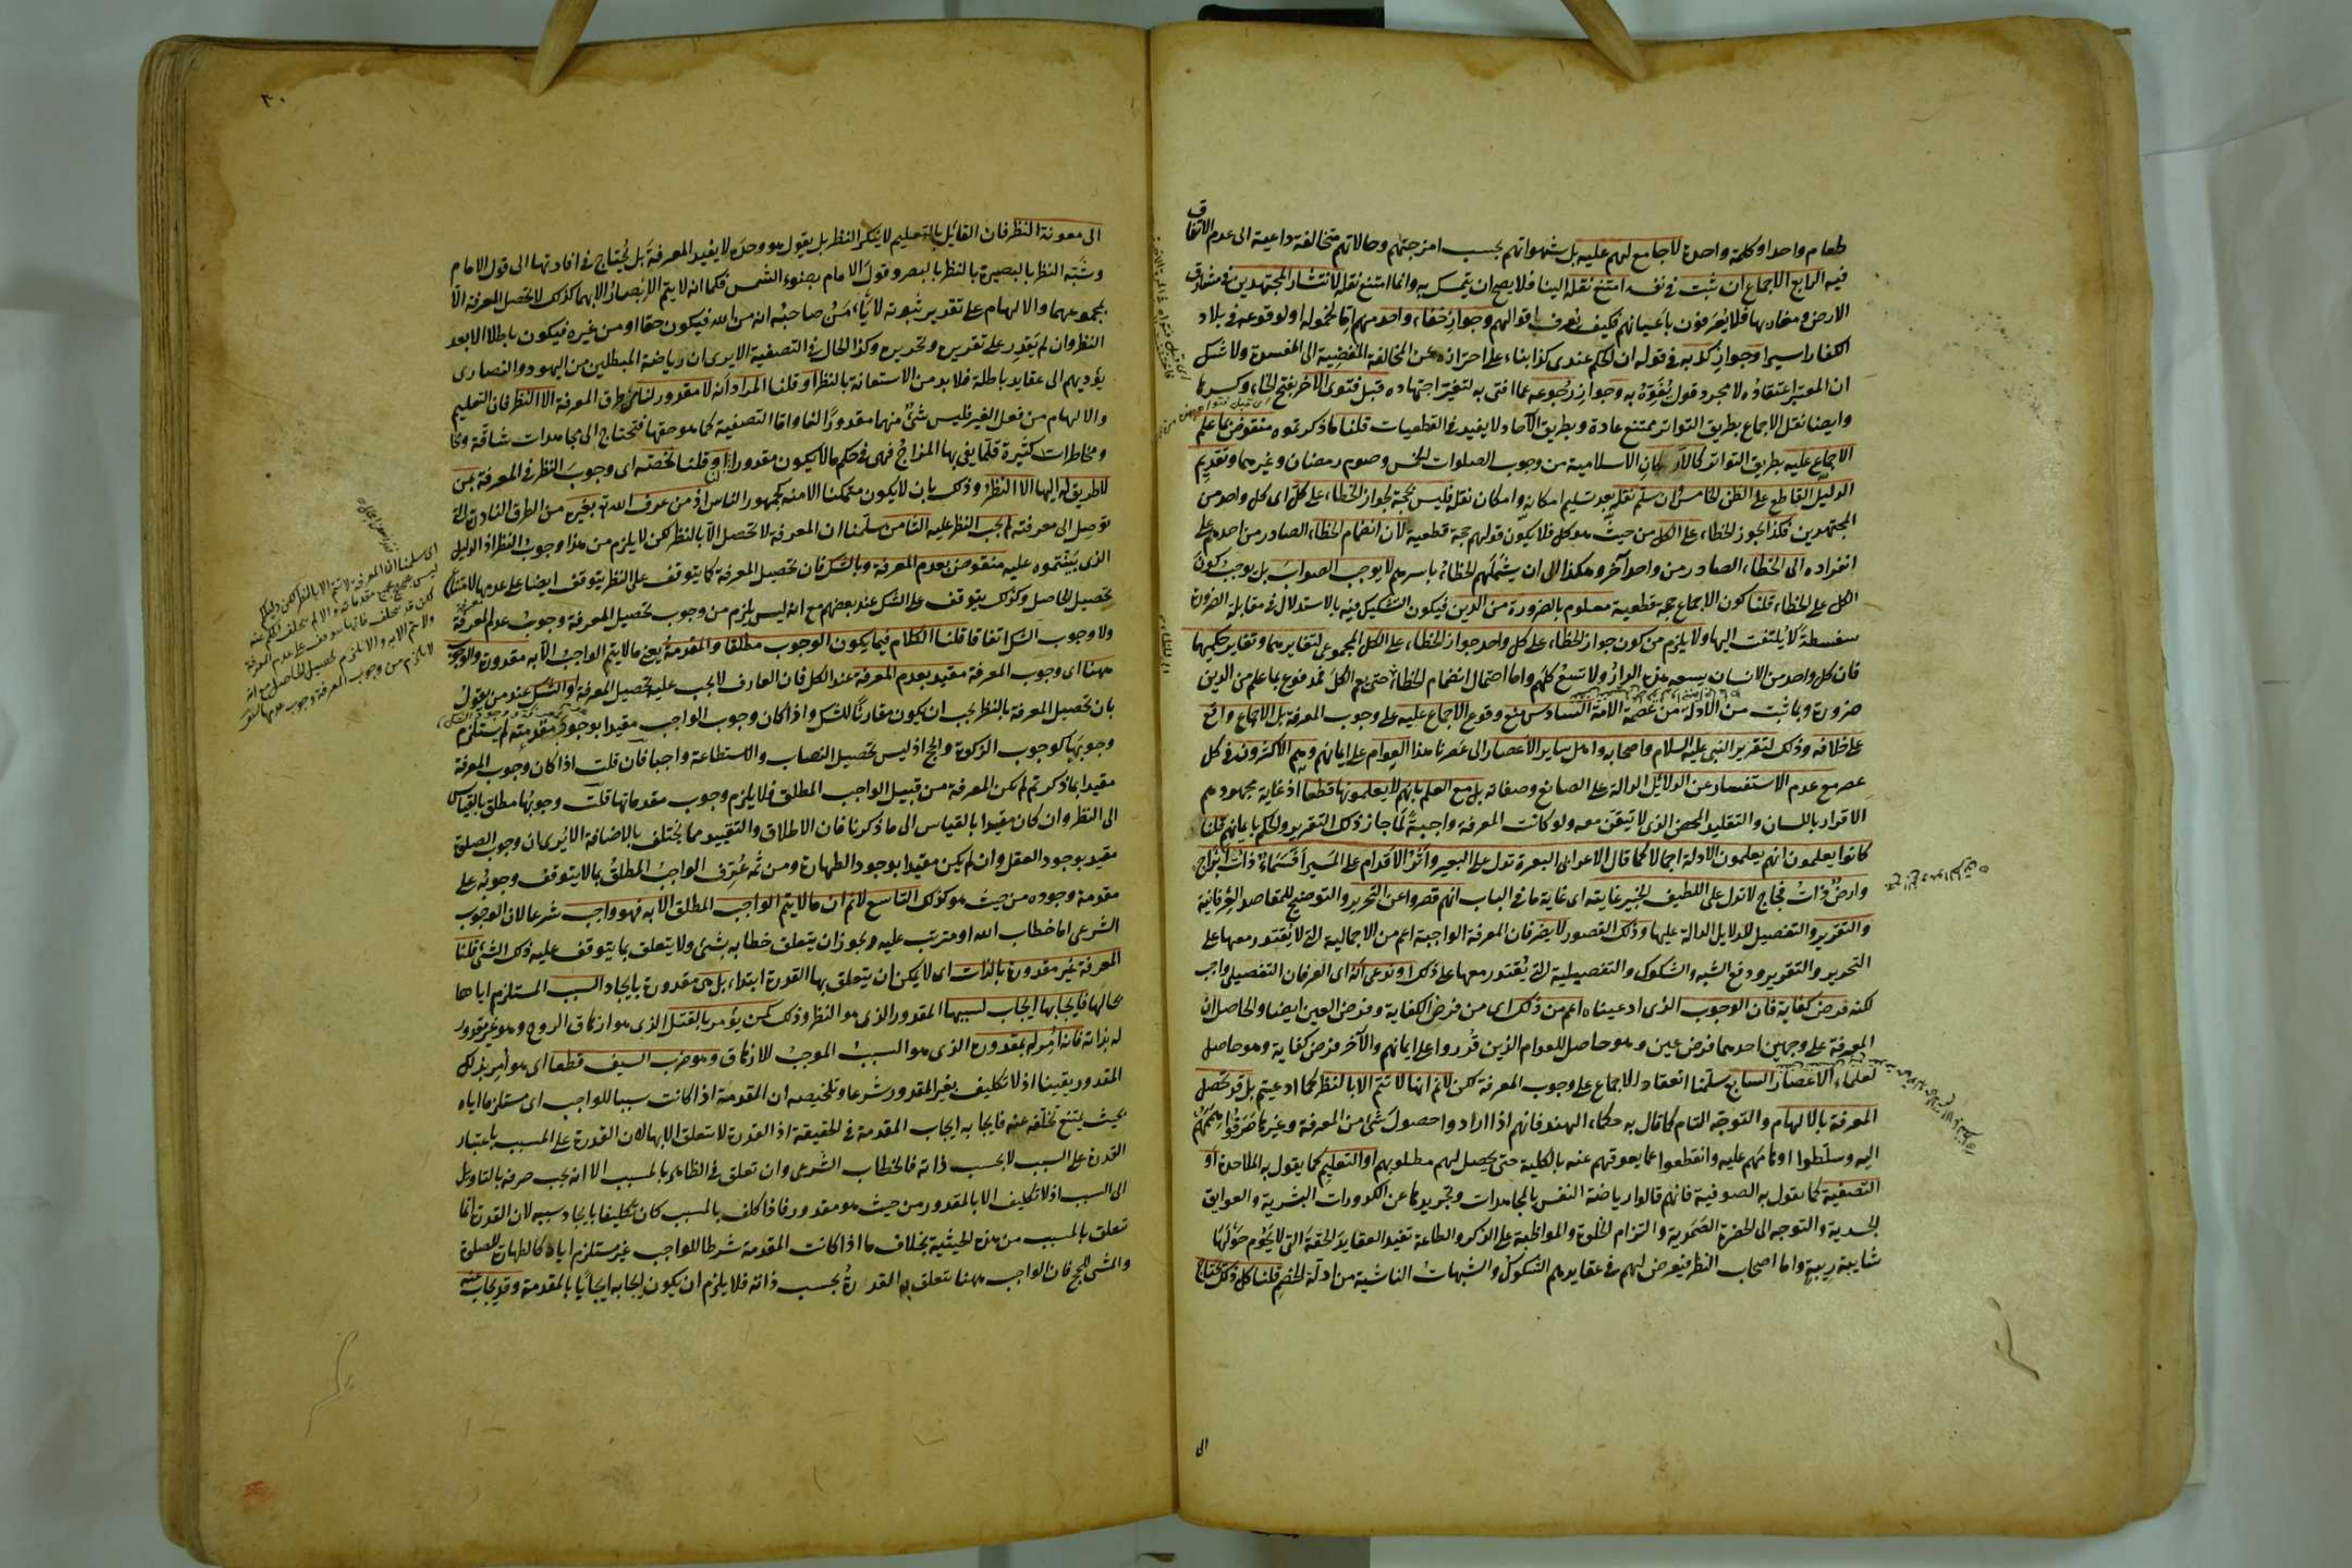 طعام واحد او كلمة واحدة لا جامع لهم عليه بل شهواتهم بحسب امزجتهم وحالاتهم متخالفة داعية الى عدم الاتفاق
فيه الرابع الاجماع ان ثبت في نفسه امتنع نقله الينا فلا يصح ان يتمسك به وانما امتنع نقله لانتشار المجتهدين في مشارق
الارض ومغاربها فلا يُعْرَفون باعيانهم فكيف يعرف اقوالهم وجواز خفاء واحد منهم اما لخموله او لوقوعه في بلاد
الكفار اسيرا وجواز كذبه في قوله ان الحكم عندى كذا بناء على احترازه عن المخالفة المفضية الى المفسدة ولا شك
ان المعتبر اعتقاده لا مجرد قول يُفَوَّهُ به وجواز رجوعه عما افتى به لتغير اجتهاده قبل فتوى الآخر بفتح الخاء وكسرها
وايضا نقل الاجماع بطريق التواتر ممتنع عادة وبطريق الآحاد لا يفيد في القطعيات قلنا ما ذكرتموه منقوض بما علم
الاجماع عليه بطريق التواتر كالاركان الاسلامية من وجوب الصلوات الخمس وصوم رمضان وغيرهما وتقديم
الدليل القاطع على الظن الخامس وان سلم نقله بعد تسليم امكانه وامكان نقله فليس بحجة لجواز الخطاء على كل اى كل واحد من
المجتهدين فكذا يجوز الخطاء على الكل من حيث هو كل فلا يكون قولهم حجة قطعية لان انضمام الخطاء الصادر من احدهم على
انفراده الى الخطاء الصادر من واحد آخر وهكذا الى ان يشملهم الخطاء باسرهم لا يوجب الصواب بل يوجب كون
الكل على الخطاء قلنا كون الاجماع حجة قطعية معلوم بالضرورة من الدين فيكون التشكيك فيه بالاستدلال في مقابلة الضرورة
سفسطة لا يُلتفت اليها ولا يلزم من كون جواز الخطاء على كل واحد جواز الخطاء على الكل المجموعى لتغايرهما وتغاير حكميهما
فان كل واحد من الانسان يسعه هذه الدار ولا تسع كلهم واما احتمال انضمام الخطاء حتى يعم الكل فمدفوع بما علم من الدين
ضرورة وبما ثبت من الادلة من عصمة الامة السادس منع وقوع الاجماع عليه على وجوب المعرفة بل الاجماع واقع
على خلافه وذلك لتقرير النبى عليه السلام واصحابه واهل ساير الاعصار الى عصرنا هذا العوام على ايمانهم وهم الاكثرون في كل
عصر مع عدم الاستفسار عن الدلائل الدالة على الصانع وصفاته بل مع العلم بانهم لا يعلمونها قطعا اذ غاية مجهودهم
الاقرار باللسان والتقليد المحض الذى لا تيقن معه ولو كانت المعرفة واجبة لما جاز ذلك التقرير والحكم بايمانهم قلنا
كانوا يعلمون انهم يعلمون الادلة اجمالا كما قال الاعرابى البعرة تدل على البعير واثر الاقدام على المسير أفسماء ذات ابراج
وارض ذات فجاج لا تدل على اللطيف الخبير غايته اى غاية ما في الباب انهم قصروا عن التحرير والتوضيح للمقاصد العرفانية
والتقرير والتفصيل للدلايل الدالة عليها وذلك القصور لا يضر فان المعرفة الواجبة اعم من الاجمالية التى لا يُقتدر معها على
التحرير والتقرير ودفع الشبه والشكوك والتفصيلية التى يُقتدر معها على ذلك او ندعى انه اى العرفان التفصيلى واجب
لكنه فرض كفاية فان الوجوب الذى ادعيناه اعم من ذلك اى من فرض الكفاية وفرض العين ايضا والحاصل ان
المعرفة على وجهين احدهما فرض عين وهو حاصل للعوام الذين قُرروا على ايمانهم والآخر فرض كفاية وهو حاصل
لعلماء الاعصار السابع سلمنا انعقاد الاجماع على وجوب المعرفة لكن لا نم انها لا تتم الا بالنظر كما ادعيتم بل قد تحصل
المعرفة بالالهام والتوجه التام كما قال به حكماء الهند فانهم اذا ارادوا حصول شئ من المعرفة وغيرها صرفوا هممهم
اليه وسلطوا اوهامهم عليه وانقطعوا عما يعوقهم عنه بالكلية حتى يحصل لهم مطلوبهم او التعليم كما يقول به الملاحدة او
التصفية كما يقول به الصوفية فانهم قالوا رياضة النفس بالمجاهدات وتجريدها عن الكدورات البشرية والعوايق
الجسدية والتوجه الى الحضرة الصمدية والتزام الخلوة والمواظبة على الذكر والطاعة تفيد العقايد الحقة التى لا يحوم حولها
شايبة ريبة واما اصحاب النظر فيعرض لهم في عقايدهم الشكوك والشبهات الناشية من ادلة الخصم قلنا كل ذلك يحتاج
الى
٣٠
الى معونة النظر فان القائل بالتعليم لا ينكر النظر بل يقول هو وحده لا يفيد المعرفة بل يُحتاج في افادتها الى قول الامام
وشَبَّه النظر بالبصيرة بالنظر بالبصر وقول الامام بضوء الشمس فكما انه لا يتم الابصار الا بهما كذلك لا تحصل المعرفة الا
بمجموعهما والالهام على تقدير ثبوته لا يأمن صاحبه انه من الله فيكون حقا او من غيره فيكون باطلا الا بعد
النظر وان لم يقدر على تقريره وتحريره وكذا الحال في التصفية الا يرى ان رياضة المبطلين من اليهود والنصارى
يؤديهم الى عقايد باطلة فلا بد من الاستعانة بالنظر او قلنا المراد انه لا مقدور لنا من طرق المعرفة الا النظر فان التعليم
والالهام من فعل الغير فليس شئ منهما مقدورا لنا واما التصفية كما هو حقها فتحتاج الى مجاهدات شاقة
ومخاطرات كثيرة قلما يفى بها المزاج فهى في حكم ما لا يكون مقدورا او قلنا نخصه اى وجوب النظر في المعرفة بمن
لا طريق له اليها الا النظر وذلك بان لا يكون متمكنا الا منه كجمهور الناس اذ من عرف الله تع بغيره من الطرق النادرة التى
توصل الى معرفته لم يجب النظر عليه الثامن سلمنا ان المعرفة لا تحصل الا بالنظر لكن لا يلزم من هذا وجوب النظر اذ الدليل
الذى بَيَّنْتموه عليه منقوض بعدم المعرفة وبالشك فان تحصيل المعرفة كما يتوقف على النظر يتوقف ايضا على عدمها لامتناع
تحصيل الحاصل وكذلك يتوقف على الشك عند بعضهم مع انه ليس يلزم من وجوب تحصيل المعرفة وجوب عدم المعرفة
ولا وجوب الشك اتفاقا قلنا الكلام فيما يكون الوجوب مطلقا والمقدمة يعنى ما لا يتم الواجب الا به مقدورة والوجوب
ههنا اى وجوب المعرفة مقيد بعدم المعرفة عند الكل فان العارف لا يجب عليه تحصيل المعرفة او الشك عند من يقول
بان تحصيل المعرفة بالنظر يجب ان يكون مقارنا للشك واذا كان وجوب الواجب مقيدا بوجود مقدمته لم يستلزم
وجوبها كوجوب الزكوة والحج اذ ليس تحصيل النصاب والاستطاعة واجبا فان قلت اذا كان وجوب المعرفة
مقيدا بما ذكرتم لم يكن المعرفة من قبيل الواجب المطلق فلا يلزم وجوب مقدماتها قلت وجوبها مطلق بالقياس
الى النظر وان كان مقيدا بالقياس الى ما ذكرنا فان الاطلاق والتقييد مما يختلف بالاضافة الا يُرى ان وجوب الصلوة
مقيد بوجود العقل وان لم يكن مقيدا بوجود الطهارة ومن ثمه عُرِّف الواجب المطلق بما لا يتوقف وجوبه على
مقدمة وجوده من حيث هو كذلك التاسع لا نم ان ما لا يتم الواجب المطلق الا به فهو واجب شرعا لان الوجوب
الشرعى اما خطاب الله او مترتب عليه ويجوز ان يتعلق خطابه بشئ ولا يتعلق بما يتوقف عليه ذلك الشئ قلنا
المعرفة غير مقدورة بالذات اى لا يمكن ان يتعلق بها القدرة ابتداء بل هى مقدورة بايجاد السبب المستلزم اياها
فايجابها ايجاب لسببها المقدور الذى هو النظر وذلك كمن يؤمر بالقتل الذى هو ازهاق الروح وهو غير مقدور
له بذاته فانه امر له بمقدوره الذى هو السبب الموجب للازهاق وهو ضرب السيف قطعا اى هو امر بذلك
المقدور يقينا اذ لا تكليف بغير المقدور شرعا وتلخيصه ان المقدمة اذا كانت سببا للواجب اى مستلزما اياه
بحيث يمتنع تخلفه عنه فايجابه ايجاب المقدمة في الحقيقة اذ القدرة لا تتعلق الا بها لان القدرة على المسبب باعتبار
القدرة على السبب لا بحسب ذاته فالخطاب الشرعى وان تعلق في الظاهر بالمسبب الا انه يجب صرفه بالتاويل
الى السبب اذ لا تكليف الا بالمقدور من حيث هو مقدور فاذا كلف بالمسبب كان تكليفا بايجاد سببه لان القدرة انما
تتعلق بالمسبب من هذه الحيثية بخلاف ما اذا كانت المقدمة شرطا للواجب غير مستلزم اياه كالطهارة للصلوة
والمشى للحج فان الواجب ههنا يتعلق به القدرة بحسب ذاته فلا يلزم ان يكون ايجابه ايجابا بالمقدمة وقد يجاب عنه